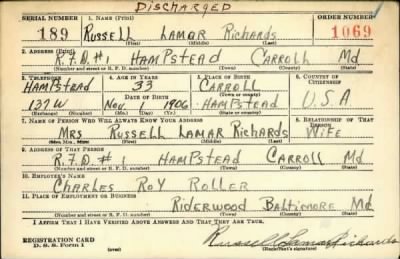 DISCHARGED
SERIAL NUMBER 1. NAME (Print) ORDER NUMBER
189 RUSSELL LAMAR RICHARDS 1069
(First) (Middle) (Last)
2. ADDRESS (Print)
R.F.D. #1 HAMPSTEAD CARROLL Md
(Number and street or R. F. D. number) (Town) (County) (State)
3. TELEPHONE 4. AGE IN YEARS 5. PLACE OF BIRTH 6. COUNTRY OF CITIZENSHIP
HAMPSTEAD 33 CARROLL
DATE OF BIRTH (Town or county)
137W Nov. 1 1906 HAMPSTEAD U.S.A
(Exchange) (Number) (Mo.) (Day) (Yr.) (State or country)
7. NAME OF PERSON WHO WILL ALWAYS KNOW YOUR ADDRESS 8. RELATIONSHIP OF THAT PERSON
MRS RUSSELL LAMAR RICHARDS WIFE
(Mr., Mrs., Miss) (First) (Middle) (Last)
9. ADDRESS OF THAT PERSON
R.F.D. #1 HAMPSTEAD CARROLL Md
(Number and street or R. F. D. number) (Town) (County) (State)
10. EMPLOYER'S NAME
CHARLES ROY ROLLER
11. PLACE OF EMPLOYMENT OR BUSINESS
RIDERWOOD BALTIMORE Md.
(Number and street or R. F. D. number) (Town) (County) (State)
I AFFIRM THAT I HAVE VERIFIED ABOVE ANSWERS AND THAT THEY ARE TRUE.
REGISTRATION CARD
D. S. S. Form 1 (over) Russell Lamar Richards
(Registrant's signature)